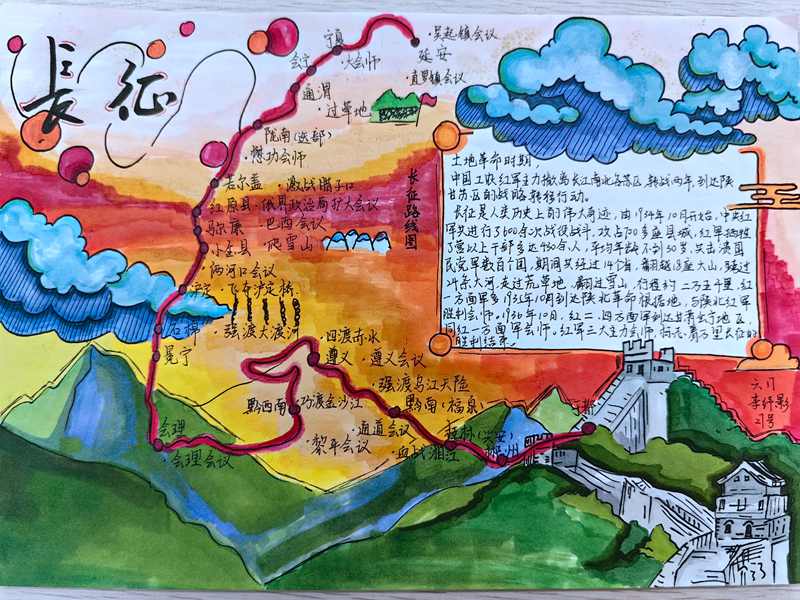 长征
宁夏
·吴起镇会议
会宁
·大会师
延安
·直罗镇会议
通渭
·过草地
陇南(迭部)
·懋功会师
若尔盖
·激战腊子口
红原县
·俄界政治局扩大会议
马尔康
·巴西会议
小金县
·爬雪山
·两河口会议
泸定
·飞夺泸定桥
石棉
·强渡大渡河
冕宁
·四渡赤水
遵义
·遵义会议
·强渡乌江天险
黔西南
·巧渡金沙江
黔南(福泉)
会理
·会理会议
·通道会议
·黎平会议
桂林(兴安)
·血战湘江
长征路线图
土地革命时期,
中国工农红军主力撤离长江南北各苏区,转战两年,到达陕
甘苏区的战略转移行动。
长征是人类历史上的伟大奇迹,由1934年10月开始,中央红
军共进行了600余次战役战斗,攻占700多座县城,红军牺牲
了营以上干部多达430余人,平均年龄不到30岁,共击溃国
民党军数百个团,期间共经过14个省,翻越18座大山,跨过
24条大河,走过荒草地,翻过雪山,行程约二万五千里,红
一方面军于1935年10月到达陕北革命根据地,与陕北红军
胜利会师,1936年10月,红二、四方面军到达甘肃会宁地区,
同红一方面军会师。红军三大主力会师,标志着万里长征的
胜利结束。
六
21号